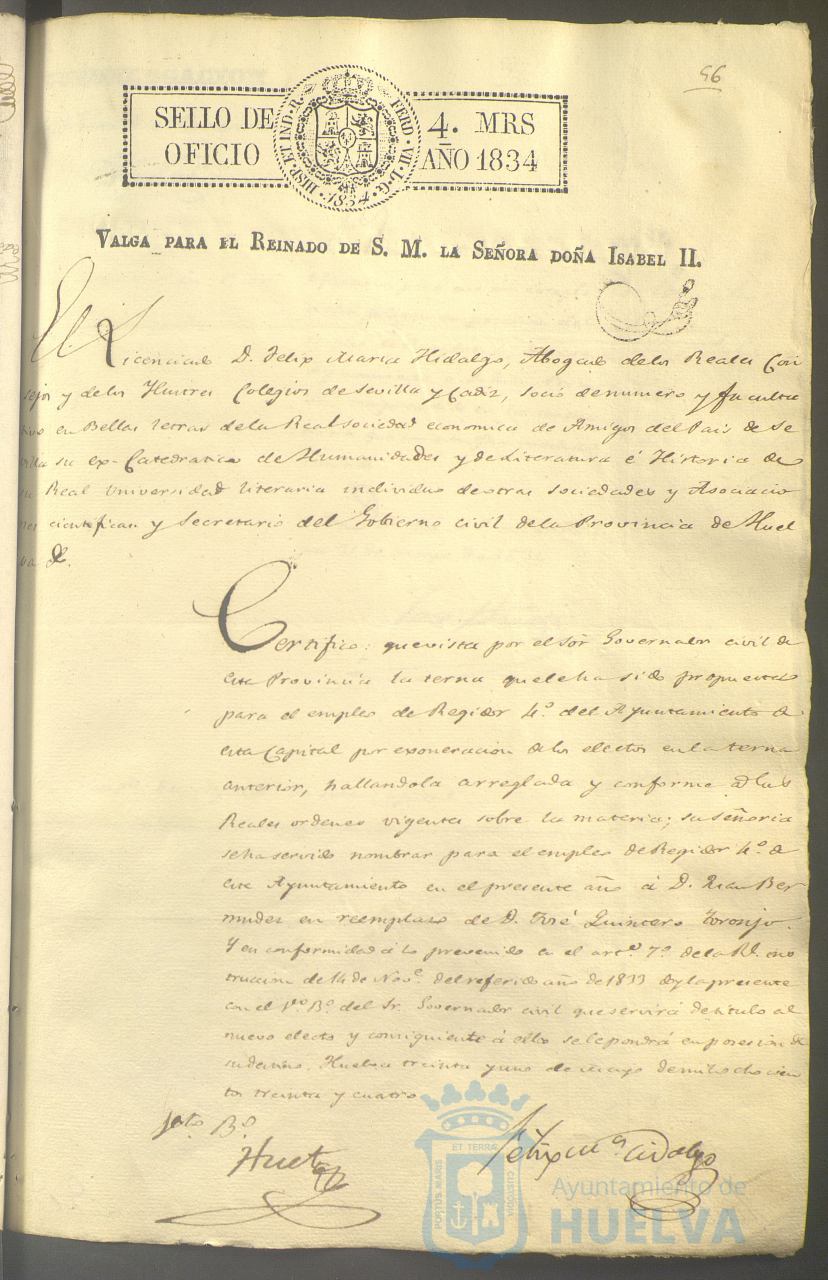 56
SELLO DE OFICIO
HISP. ET IND. R. FERD. VII. D. G. 1834
4. MRS AÑO 1834
VALGA PARA EL REINADO DE S. M. LA SEÑORA DOÑA ISABEL II.
El Licenciado D. Felix Maria Hidalgo, Abogado de los Reales Con
sejos y de los Ilustres Colegios de Sevilla y Cadiz, socio de numero y faculta
tivo en Bellas letras de la Real sociedad economica de Amigos del Pais de Se
villa su ex-Catedratico de Humanidades y de Literatura é Historia de
su Real Universidad literaria individuo de otras sociedades y Asociacio
nes cientificas y Secretario del Gobierno civil de la Provincia de Huel
va &.
Certifico: que vista por el Sor Governador civil de
esta Provincia la terna que le ha sido propuesta
para el empleo de Regidor 4º. del Ayuntamiento de
esta Capital por exoneracion de los electos en la terna
anterior, hallandola arreglada y conforme a las
Reales ordenes vigentes sobre la materia; su señoria
se ha servido nombrar para el empleo de Regidor 4º. de
este Ayuntamiento en el presente año á D. Ber
mudez en reemplazo de D. José Quintero Toronjo.
Y en conformidad á lo prevenido en el artº. 7º. de la Rl. ins
truccion de 14 de Nove. del referido año de 1833 doy la presente
con el Vto. Bº. del Sr. Governador civil que servirá de titulo al
nuevo electo y consiguiente á ello se le pondrá en posesion de
su destino. Huelva treinta y uno de mayo de mil ochocien
tos treinta y cuatro
Vto. Bº.
Huet
Felix Mª Hidalgo
PORTUS MARIS ET TERRAE CUSTODIA
Ayuntamiento de
HUELVA